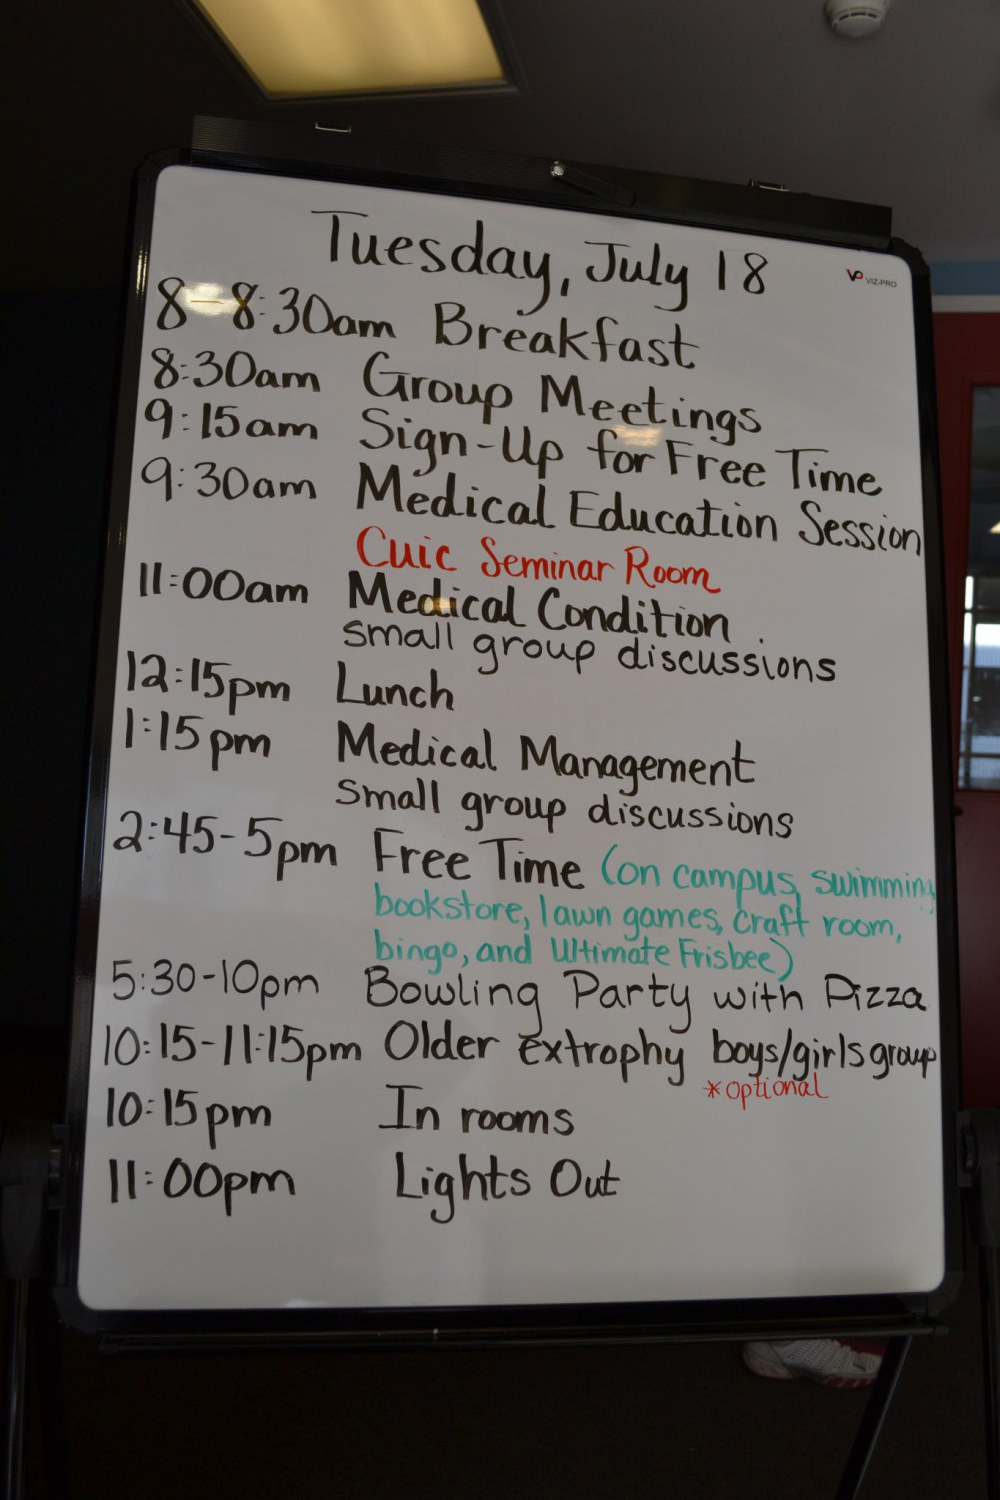 Tuesday, July 18
VP VIZ-PRO
8-8:30am Breakfast
8:30am Group Meetings
9:15am Sign-Up for Free Time
9:30am Medical Education Session
Cuic Seminar Room
11:00am Medical Condition
small group discussions
12:15pm Lunch
1:15pm Medical Management
small group discussions
2:45-5pm Free Time (on campus, swimming,
bookstore, lawn games, craft room,
bingo, and Ultimate Frisbee)
5:30-10pm Bowling Party with Pizza
10:15-11:15pm Older extrophy boys/girls group
*optional
10:15pm In rooms
11:00pm Lights Out